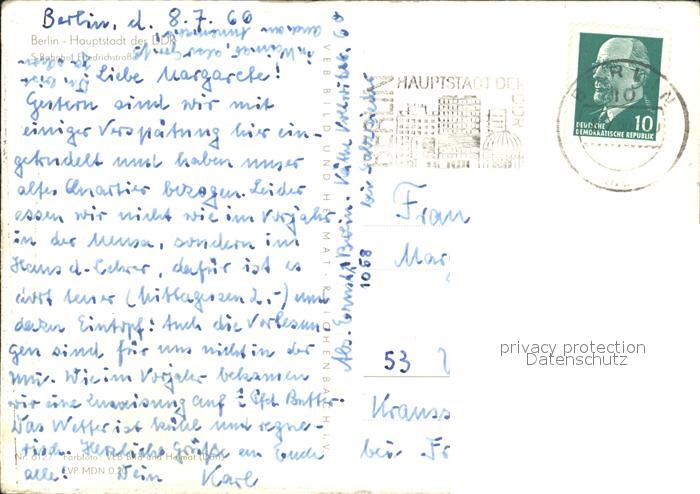 Berlin, d. 8.7.66
Berlin - Hauptstadt der DDR
S-Bahnhof Friedrichstraße
Liebe Margarete!
Gestern sind wir mit
einiger Verspätung hier ein-
getrudelt und haben unser
altes Quartier bezogen. Leider
essen wir nicht wie im Vorjahr
in der Mensa, sondern im
Haus d. Lehrer, dafür ist es
dort teuer (Mittagessen 2,-) und
dazu Eintopf! Auch die Vorlesun-
gen sind für uns nicht in der
Uni. Wie im Vorjahr bekamen
wir eine Zuweisung auf Pfd Butter.
Das Wetter ist kühl und regne-
risch. Herzliche Grüße an Euch
alle! Dein Karl
Nr. 6127 Farbfoto: VEB Bild und Heimat
EVP MDN 0,20
VEB BILD UND HEIMAT · REICHENBACH I. V.
Abs. Berlin, Käthe
1058 bei
BERLIN
HAUPTSTADT DER
DDR
DEUTSCHE
DEMOKRATISCHE REPUBLIK
10
Frau
Mar
53
Krauss
bei Fr
privacy protection
Datenschutz